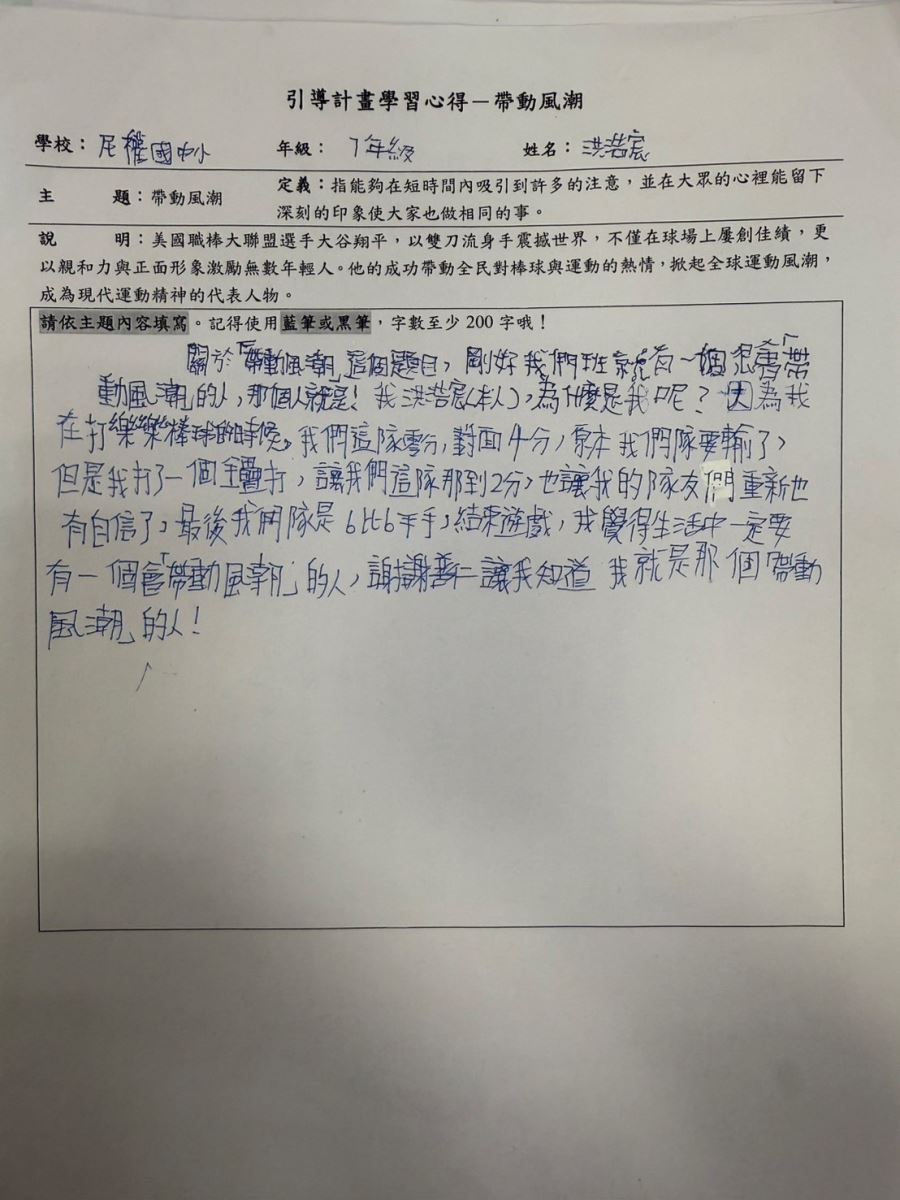 引導計畫學習心得－帶動風潮
學校：民權國中小 年級：7年級 姓名：洪浩宸
主 題：帶動風潮 定義：指能夠在短時間內吸引到許多的注意，並在大眾的心裡能留下
深刻的印象使大家也做相同的事。
說 明：美國職棒大聯盟選手大谷翔平，以雙刀流身手震撼世界，不僅在球場上屢創佳績，更
以親和力與正面形象激勵無數年輕人。他的成功帶動全民對棒球與運動的熱情，掀起全球運動風潮，
成為現代運動精神的代表人物。
請依主題內容填寫。記得使用藍筆或黑筆，字數至少 200 字哦！
關於「帶動風潮」這個題目，剛好我們班就有一個很會「帶
動風潮」的人，那個人就是！我洪浩宸(本人)，為什麼是我呢？因為我
在打樂樂棒球的時候。我們這隊零分，對面4分，原本我們隊要輸了，
但是我打了一個全壘打，讓我們這隊那到2分，也讓我的隊友們重新也
有自信了，最後我們隊是6比6平手，結束遊戲，我覺得生活中一定要
有一個會「帶動風潮」的人，謝謝善仁讓我知道我就是那個「帶動
風潮」的人！